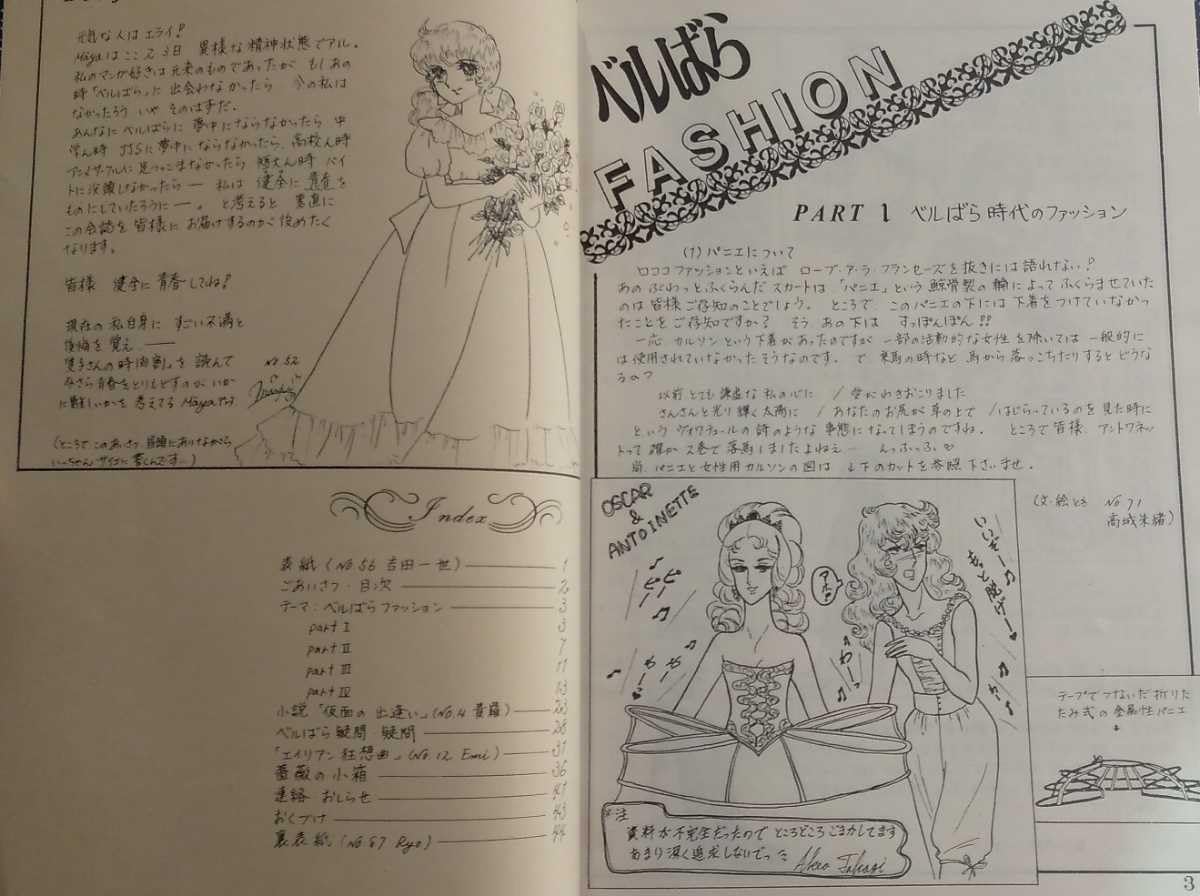 元気な人はエライ!
Mayaはここ2、3日 異様な精神状態でアル。
私のマンガ好きは元来のものであったが もしあの
時「ベルばら」に出会わなかったら 今の私は
なかったろう いや そのはずだ.
あんなに ベルばらに夢中にならなかったら 中
学ん時 JJSに夢中にならなかったら、高校ん時
アニメサークルに足つっこまなかったら 短大ん時 バイ
トに没頭しなかったら― 私は健全に青春を
ものにしていたろうに―。 と考えると 素直に
この会誌を皆様にお届けするのが後めたく
なります。
皆様 健全に青春してね!
現在の私自身に すごい不満と
後悔を覚え ―
さんの時間割」を読んで
今さら青春をとりもどすのが いか
に難しいかを考えてる Mayaでった
No.52
(ところで このあいさつ 冒頭にありながら
いっちゃんサイゴに書くんです…)
Index
表紙 (No.56 吉田一世) 1
ごあいさつ・目次 2
テーマ:ベルばらファッション 3
part I 3
part II 7
part III 11
part IV 13
小説「仮面の出逢い」(No.4 貴羅) 23
ベルばら疑問・疑問 28
「エイリアン狂想曲」(No.12 Emi) 31
薔薇の小箱 36
連絡 おしらせ 41
おくづけ 43
裏表紙 (No.67 Ryo) 44
ベルばら
FASHION
PART 1 ベルばら時代のファッション
(1) パニエについて
ロココファッションといえば ローブ・ア・ラ・フランセーズを抜きには語れない!
あのぶわっとふくらんだスカートは「パニエ」という鯨骨製の輪によってふくらませていた
のは皆様ご存知のことでしょう。 ところで、このパニエの下には下着をつけていなかっ
たことをご存知ですか? そう、あの下は すっぽんぽん!!
一応 カルソンという下着があったのですが 一部の活動的な女性を除いては 一般的に
は使用されていなかったそうなのです。 で 乗馬の時など 馬から落っこちたりするとどうな
るの?
以前とても謙虚な私の心に / 愛がわきおこりました
さんさんと光り輝く太陽に / あなたのお尻が草の上で / はじらっているのを見た時に
という ヴォワチュールの詩のような事態になってしまうのですね。 ところで皆様、アントワネッ
トって 確か 2巻で落馬しましたよねえ― んふっふっふ
尚、パニエと女性用カルソンの図は ↓下のカットを参照下さいませ.
(文・絵とも No 71
高城朱緒)
OSCAR
&
ANTOINETTE
ピー
ピー
わー
わー
アホ
わーっ
いいぞー♫
もっと脱げー♥
※注
資料が不完全だったので ところどころごまかしてます
あまり深く追求しないでった
Akeo Takagi
テープでつないだ折りた
たみ式の金属性パニエ
↓
3